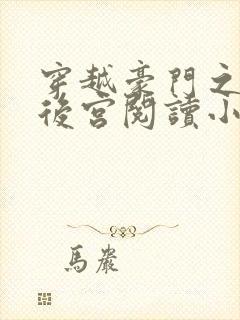 穿越豪門之
後宮閱讀小
馬嚴